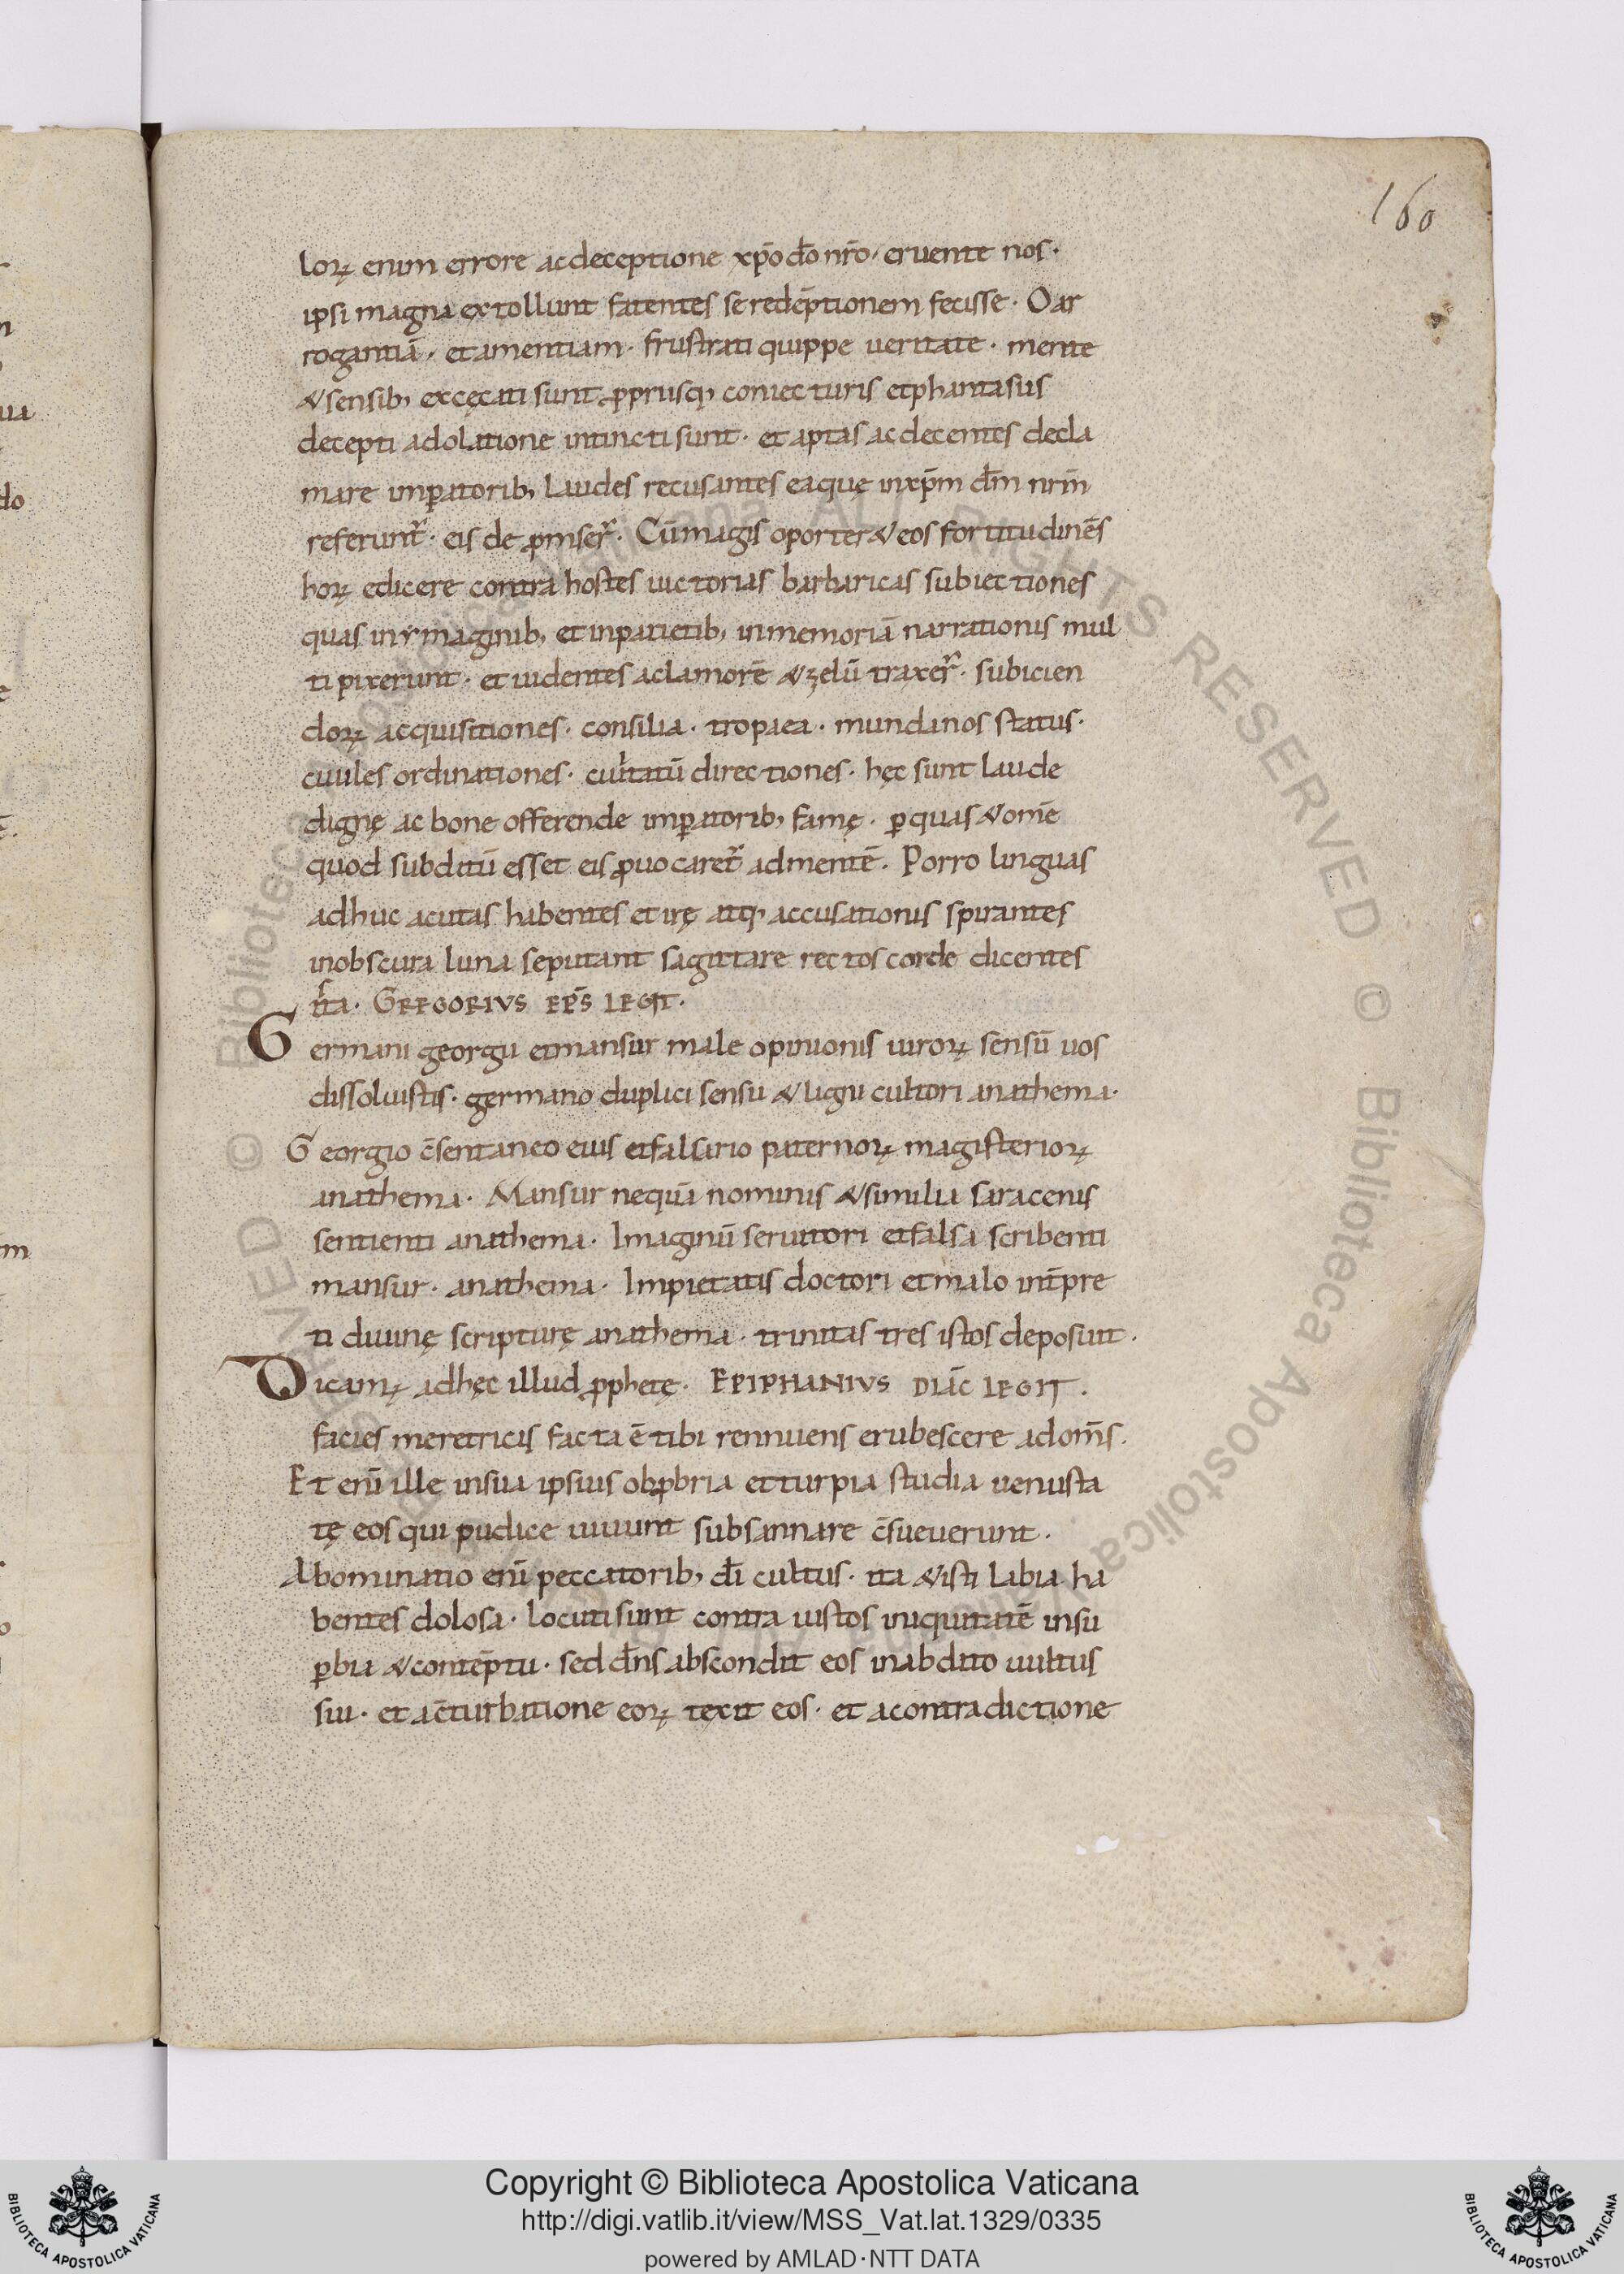 160
loꝝ enim errore ac deceptione xp̄o d̄o nr̄o, eruente nos·
ipsi magna extollunt fatentes se redēptionem fecisse· O ar
rogantiā, et amentiam· frustrati quippe ueritate· mente
& sensib; excęcati sunt, ꝓpriisq; coniecturis et phantasiis
decepti adolatione intincti sunt· et aptas ac decentes decla
mare imꝑatorib; laudes recusantes eaque in xp̄m d̄m nr̄m
referunt̃· eis deꝓmser̃· Cū magis oporter& eos fortitudinēs
hoꝝ edicere contra hostes uictorias barbaricas subiectiones
quas in ymaginib; et in parietib; in memoriā narrationis mul
ti pixerunt· et uidentes ac lamorē & zelū traxer̃· subicien
doꝝ acquisitiones· consilia· tropaea· mundanos status·
ciuiles ordinationes· ciuitatū directiones· hęc sunt laude
dignę ac bone offerende imꝑatorib; famę· ꝑ quas & om̄e
quod subditū esset eis ꝓuocaret̃ ad mentē· Porro linguas
adhuc acutas habentes et irę atq; accusationis spirantes
in obscura luna se putant sagittare rectos corde dicentes
ita· GREGORIVS EPS̄ LEGIT·
Germani georgii et mansur male opinionis uiroꝝ sensū uos
dissoluistis· germano duplici sensu & ligni cultori anathema·
Georgio c̄sentaneo eius et falsario paternoꝝ magisterioꝝ
anathema· Mansur nequā nominis & similia saracenis
sentienti anathema· Imaginū seruitori et falsa scribenti
mansur· anathema· Impietatis doctori et malo int̄pre
ti diuinę scripturę anathema· trinitas tres istos deposuit·
Dicamꝰ adhęc illud ꝓphetę· EPIPHANIVS DIAC̄ LEGIT·
facies meretricis facta ē tibi rennuens erubescere ad om̄s·
Et eni ̄ ille in sua ipsius obꝓbria et turpia studia uenusta
tę eos qui pudice uiuunt subsannare c̄sueuerunt·
Abominatio enī peccatorib; d̄i cultus· ita & isti labia ha
bentes dolosa· locuti sunt contra iustos iniquitatē in su
ꝑbia & contēptu· sed d̄ns abscondit eos in abdito uultus
sui· et a c̄turbatione eoꝝ texit eos· et a contradictione
Copyright © Biblioteca Apostolica Vaticana
http://digi.vatlib.it/view/MSS_Vat.lat.1329/0335
powered by AMLAD·NTT DATA